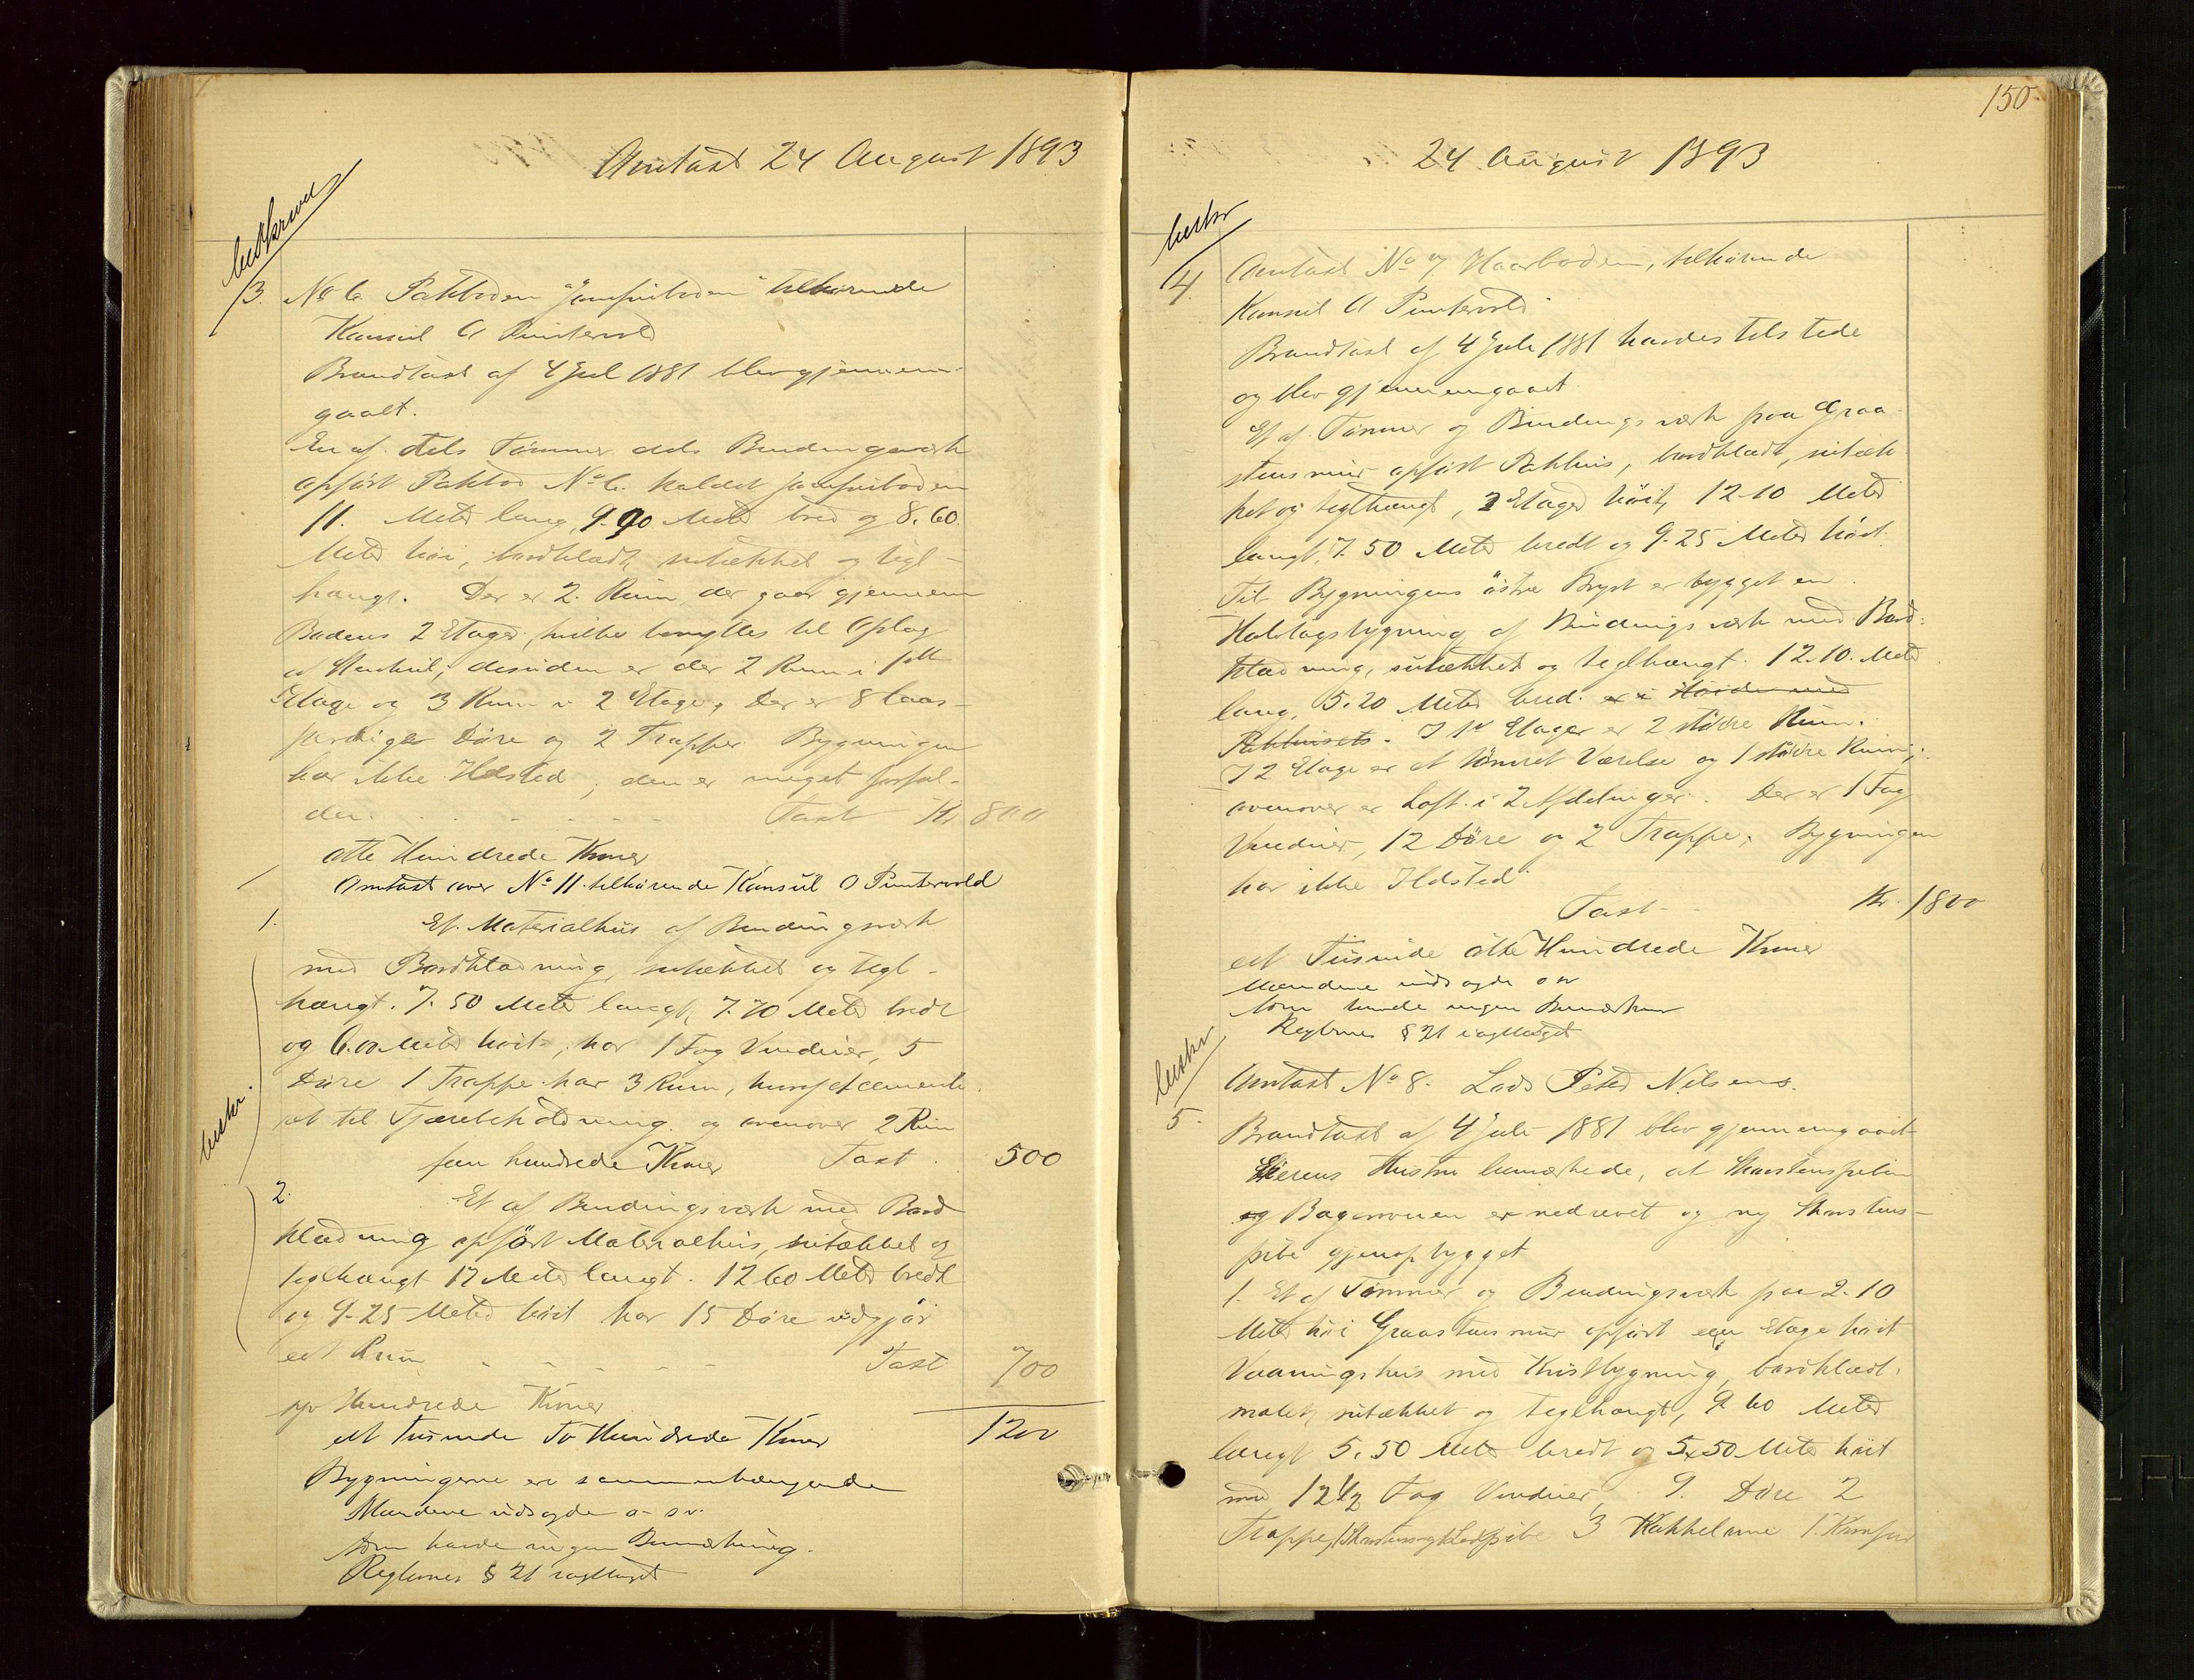 Omtaxt 24 August 1893
beskrevet
3. No 6. Pakboden "Jomfruboden" tilhørende
Konsul O Puntervold
Brandtaxt af 4 Juli 1881 blev gjennem-
gaaet.
En af dels Tømmer dels Bindingsværk
opført Pakbod No 6. kaldet Jomfruboden
11. Meter lang, 9.90 Meter bred og 8.60.
Meter høi, bordklædt, sutækket og tegl-
hængt. Der er 2. Rum der gaar gjennem
Bodens 2 Etager, hvilke benyttes til Oplag
af Stenkul, desuden er der 2 Rum i 1ste
Etage og 3 Rum i 2 Etage, Der er 8 laas-
færdige Døre og 2 Trapper. Bygningen
har ikke Ildsted, den er meget forfal-
den. - - - - - Taxt Kr 800
otte Hundrede Kroner
Omtaxt over No 11 tilhørende Konsul O Puntervold
1. Et Materialhus af Bindingsværk
med Bordklædning, sutækket og tegl-
hængt. 7.50 Meter langt, 7.70 Meter bredt
og 6.00 Meter høit, har 1 Fag Vinduer, 5
Døre 1 Trappe har 3 Rum, hvoraf et cemente-
ret til Tjærebeholdning og ovenover 2 Rum
beskr.
fem hundrede Kroner Taxt. 500
2. Et af Bindingsværk med Bord
klædning opført Materialhus, sutækket og
teglhængt 17 Meter langt. 12 60 Meter bredt
og 9.25 Meter høit har 15 Døre udgjør
eet Rum - - - - - Taxt 700
syv Hundrede Kroner
1200
et tusinde To Hundrede Kroner
Bygningerne er sammenhængende
Mændene udsagde o. s. v.
som havde ingen Bemærkning.
Reglernes § 21 iagttaget
150.
24 August 1893
beskr
4. Omtaxt No 7 Haarboden, tilhørende
Konsul O Puntervold
Brandtaxt af 4 Juli 1881 havdes tilstede
og blev gjennemgaaet.
Et af Tømmer og Bindingsværk paa Graa-
stensmur opført Pakhus, bordklædt, sutæk-
ket og teglhængt, 2 Etager høit, 12.10 Meter
langt, 7.50 Meter bredt og 9.25 Meter høit.
Til Bygningens østre Bryst er bygget en
Halvtagsbygning af Bindingsværk med Bord-
klædning, sutækket og teglhængt. 12.10. Meter
lang, 5.20 Meter bred. er i Høide med
Pakhusets. I 1ste Etager er 2 større Rum.
I 2 Etage er et tømret Værelse og 1 større Rum;
ovenover er Loft i 2 Afdelinger. Der er 1 Fag
Vinduer, 12 Døre og 2 Trapper, Bygningen
har ikke Ildsted.
Taxt - - Kr. 1800
eet Tusinde otte Hundrede Kroner
Mændene udsagde o s v
som havde ingen Bemærkn
Reglernes § 21 iagttaget
beskr
5. Omtaxt No 8. Lods Peter Nilsens.
Brandtaxt af 4 Juli 1881 blev gjennemgaaet
Eierens Hustru bemærkede, at Skorstenspiben
og Bagerovnen er nedrevet og ny Skorstens-
pibe gjenopbygget
1. Et af Tømmer og Bindingsværk paa 2.10
Meter høi Graastensmur opført een Etage høit
Vaaningshus med Kvistbygning, bordklædt,
malet, sutækket og teglhængt, 9 60 Meter
langt 5.50 Meter bredt og 5.50 Meter høit
med 12 1/2 Fag Vinduer, 9. Døre 2
Trapper, 3 Kakkelovne 1 Komfur